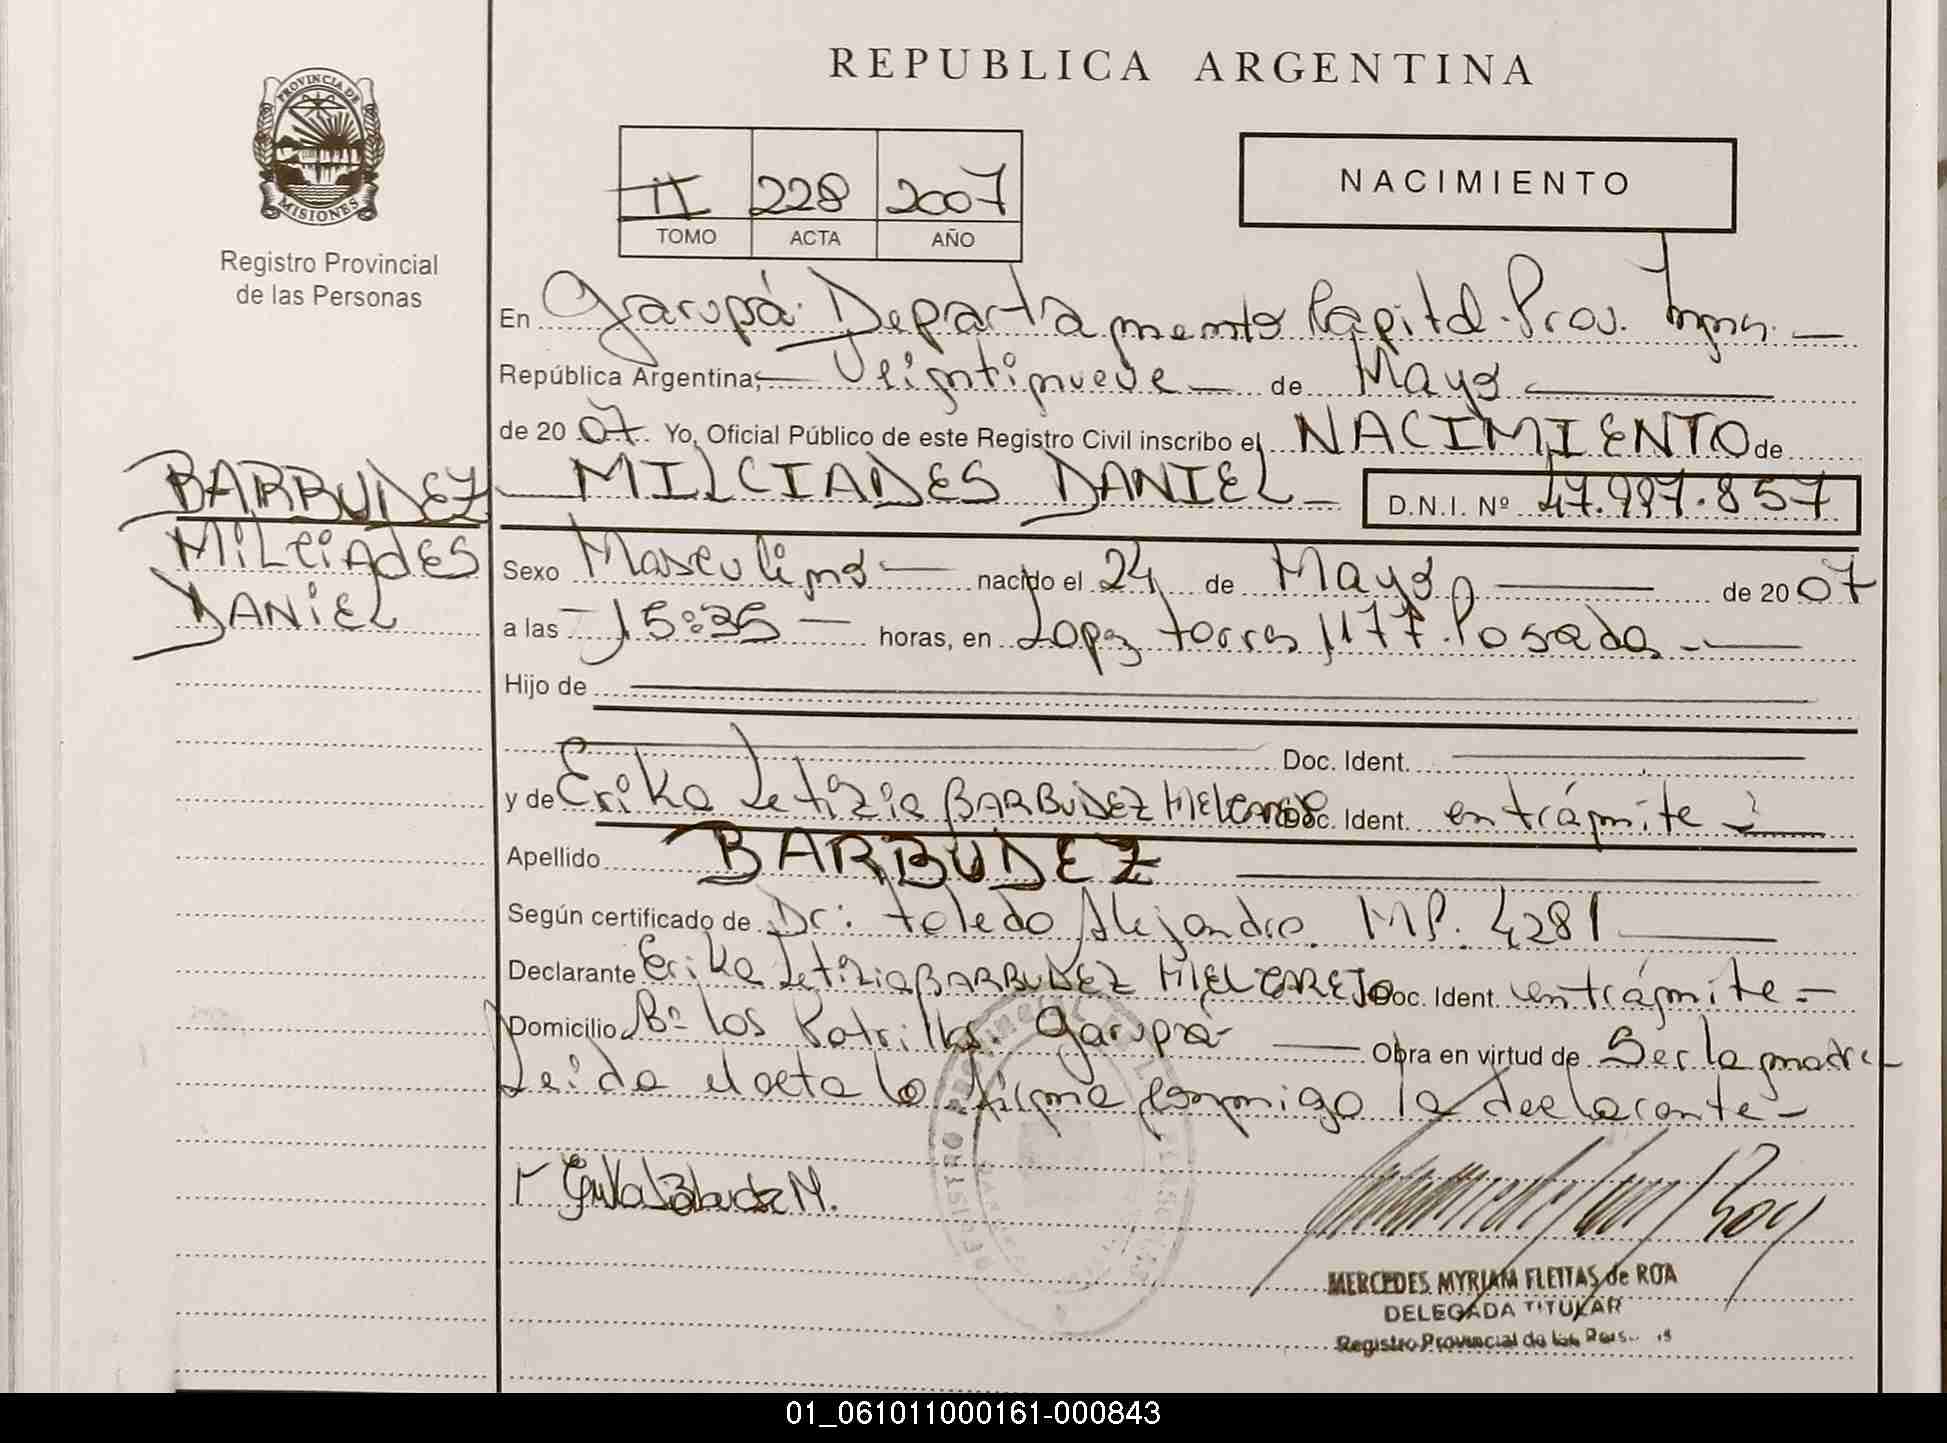 REPUBLICA ARGENTINA
PROVINCIA DE MISIONES
Registro Provincial
de las Personas
II 228 2007
TOMO ACTA AÑO
NACIMIENTO
En Garupá. Departamento Capital. Prov. Mnes. —
República Argentina, — Veintinueve — de Mayo —
de 2007. Yo, Oficial Público de este Registro Civil inscribo el NACIMIENTO de
MILCIADES DANIEL — D.N.I. Nº 47.997.857
BARBUDEZ
MILCIADES
DANIEL
Sexo Masculino — nacido el 24 de Mayo — de 2007
a las — 15:35 — horas, en Lopez Torres 1177. Posadas —
Hijo de —
— Doc. Ident. —
y de Erika Letizia BARBUDEZ MELGAREJO Doc. Ident. en trámite —
Apellido BARBUDEZ —
Según certificado de Dr: Toledo Alejandro. MP. 4281 —
Declarante Erika Letizia BARBUDEZ MELGAREJO Doc. Ident. en trámite —
Domicilio Bº Los Potrillos. Garupá — Obra en virtud de Ser la madre —
Leida el acta la firma conmigo la declarante —
MERCEDES MYRIAM FLEITAS de ROA
DELEGADA TITULAR
Registro Provincial de las
01_061011000161-000843